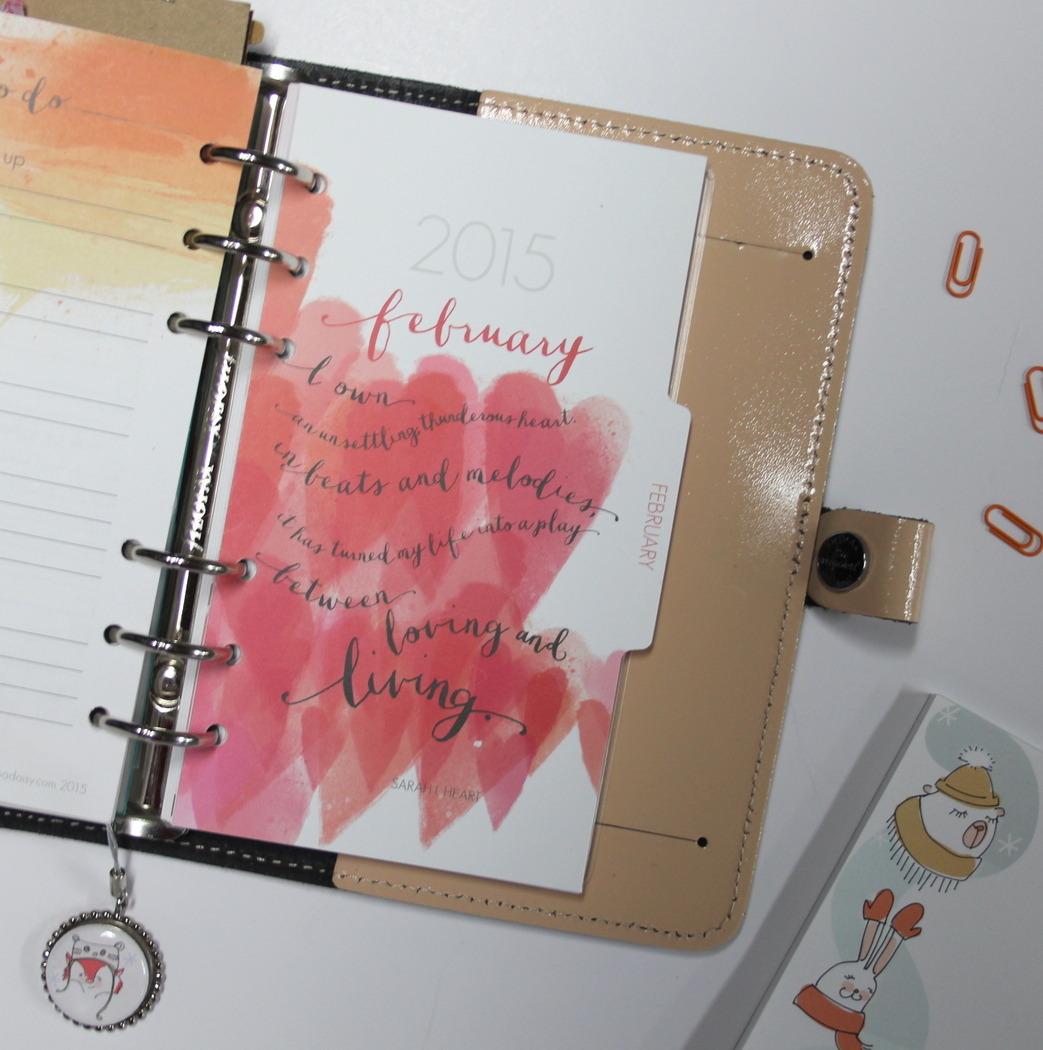 o do
up
sadaisy.com 2015
2015
february
I own
an unsettling, thunderous heart.
in beats and melodies,
it has turned my life into a play
between
loving and
living.
SARAH I. HEART
FEBRUARY